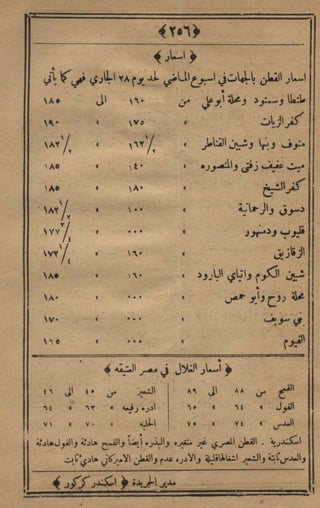 ﴿٢٥٦﴾
﴿ اسعار ﴾
اسعار القطن بالجهات في اسبوع الماضي لحد يوم ٢٨ الجاري فهي كما يأتي
طنطا وسمنود ومحلة أبو علي من ١٦٠ الى ١٨٥
كفر الزيات » ١٧٥ » ١٩٠
منوف وبنها وشبين القناطر » ١٦٢ ١/٢ » ١٨٢ ١/٢
ميت عفيف زفتى والمنصوره » ١٤٠ » ١٨٥
كفر الشيخ » ١٨٠ » ١٨٥
دسوق والرحمانية » ١٠٠ » ١٨٢ ١/٢
قليوب ودمنهور » ٠٠٠ » ١٧٧
الزقازيق » ١٦٠ » ١٧٢ ١/٤
شبين الكوم واتياي البارود » ١٦٠ » ١٨٥
محلة روح وأبو حمص » ٠٠٠ » ١٨٠
بني سويف » ٠٠٠ » ١٧٠
الفيوم » ٠٠٠ » ١٦٥
﴿ أسعار الغلال في مصر العتيقه ﴾
القمح من ٨٨ الى ٨٩ الشعير من ٤٥ الى ٤٦
الفول » ٦٤ » ٦٥ ادره رفيعه » ٦٣ » ٦٤
العدس » ٧٤ » ٧٥ الحلبه » ٧٠ » ٧١
اسكندرية . القطن المصري غير متغيره والبذره أيضاً والقمح هادئة والفول هادئة
والعدس ثابتة والشعير اشغالها قليلة والادره عدم والقطن الاميركاني هادي ثابت
مدير الجريدة ﴿ اسكندر كركور ﴾